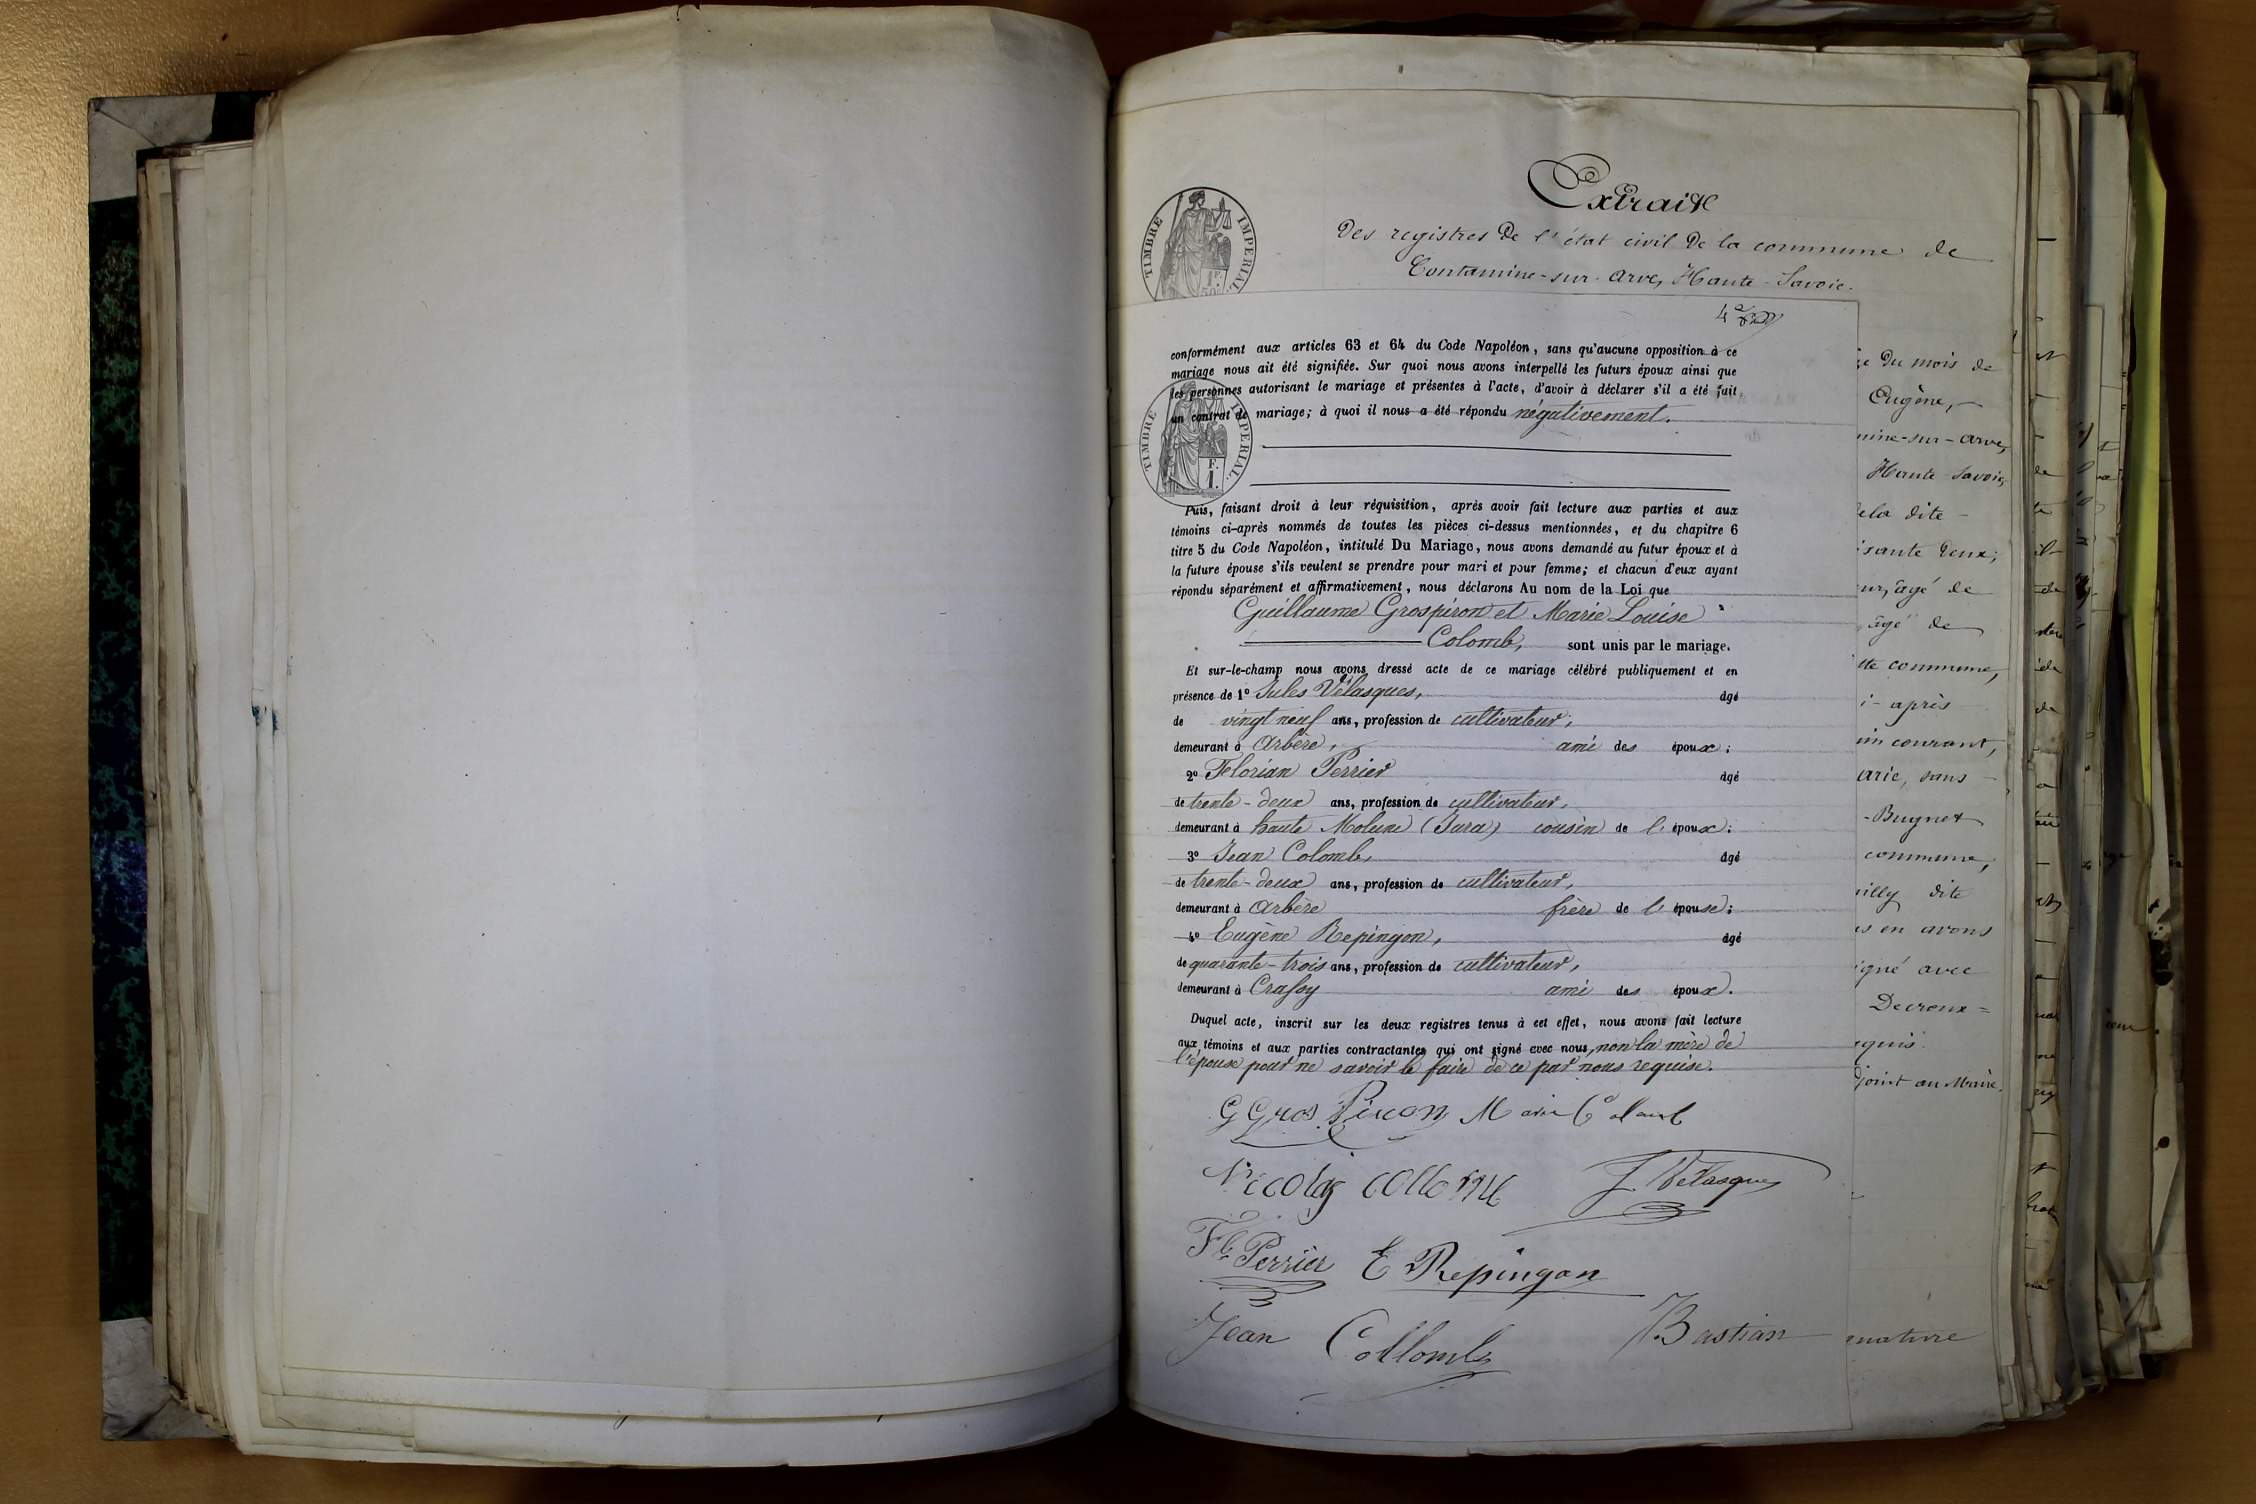 Extrait
Des registres De l'état civil De la commune de
Contamine-sur-Arve, Haute-Savoie.
TIMBRE IMPERIAL
1 F. 50
conformément aux articles 63 et 64 du Code Napoléon, sans qu'aucune opposition à ce
mariage nous ait été signifiée. Sur quoi nous avons interpellé les futurs époux ainsi que
les personnes autorisant le mariage et présentes à l'acte, d'avoir à déclarer s'il a été fait
un contrat de mariage; à quoi il nous a été répondu négativement.
TIMBRE IMPERIAL
F. 1.
Puis, faisant droit à leur réquisition, après avoir fait lecture aux parties et aux
témoins ci-après nommés de toutes les pièces ci-dessus mentionnées, et du chapitre 6
titre 5 du Code Napoléon, intitulé Du Mariage, nous avons demandé au futur époux et à
la future épouse s'ils veulent se prendre pour mari et pour femme; et chacun d'eux ayant
répondu séparément et affirmativement, nous déclarons Au nom de la Loi que
Guillaume Grospiron et Marie Louise
Colomb, sont unis par le mariage.
Et sur-le-champ nous avons dressé acte de ce mariage célébré publiquement et en
présence de 1° Jules Vélasques, âgé
de vingt neuf ans, profession de cultivateur,
demeurant à Arbère, ami des époux;
2° Florian Perrier âgé
de trente-deux ans, profession de cultivateur,
demeurant à haute Molune (Jura) cousin de l'époux;
3° Jean Colomb, âgé
de trente-deux ans, profession de cultivateur,
demeurant à Arbère frère de l'épouse;
4° Eugène Repingon, âgé
de quarante-trois ans, profession de cultivateur,
demeurant à Crassy ami des époux.
Duquel acte, inscrit sur les deux registres tenus à cet effet, nous avons fait lecture
aux témoins et aux parties contractantes qui ont signé avec nous, non la mère de
l'épouse pour ne savoir le faire de ce par nous requise.
G Gros Piron Marie Colomb
Nicolas collomb J Velasques
Fl Perrier E Repingon
Jean Collomb Bastian
du mois de
Eugène,
mine-sur-Arve,
Haute-Savoie,
dela dite
isante deux;
ur, âgé de
âgé de
tte commune,
i-après
in courant,
arie, sans
-Bugnet
commune,
illy dite
s en avons
igné avec
Decroux=
quis.
djoint au Maire.
nature